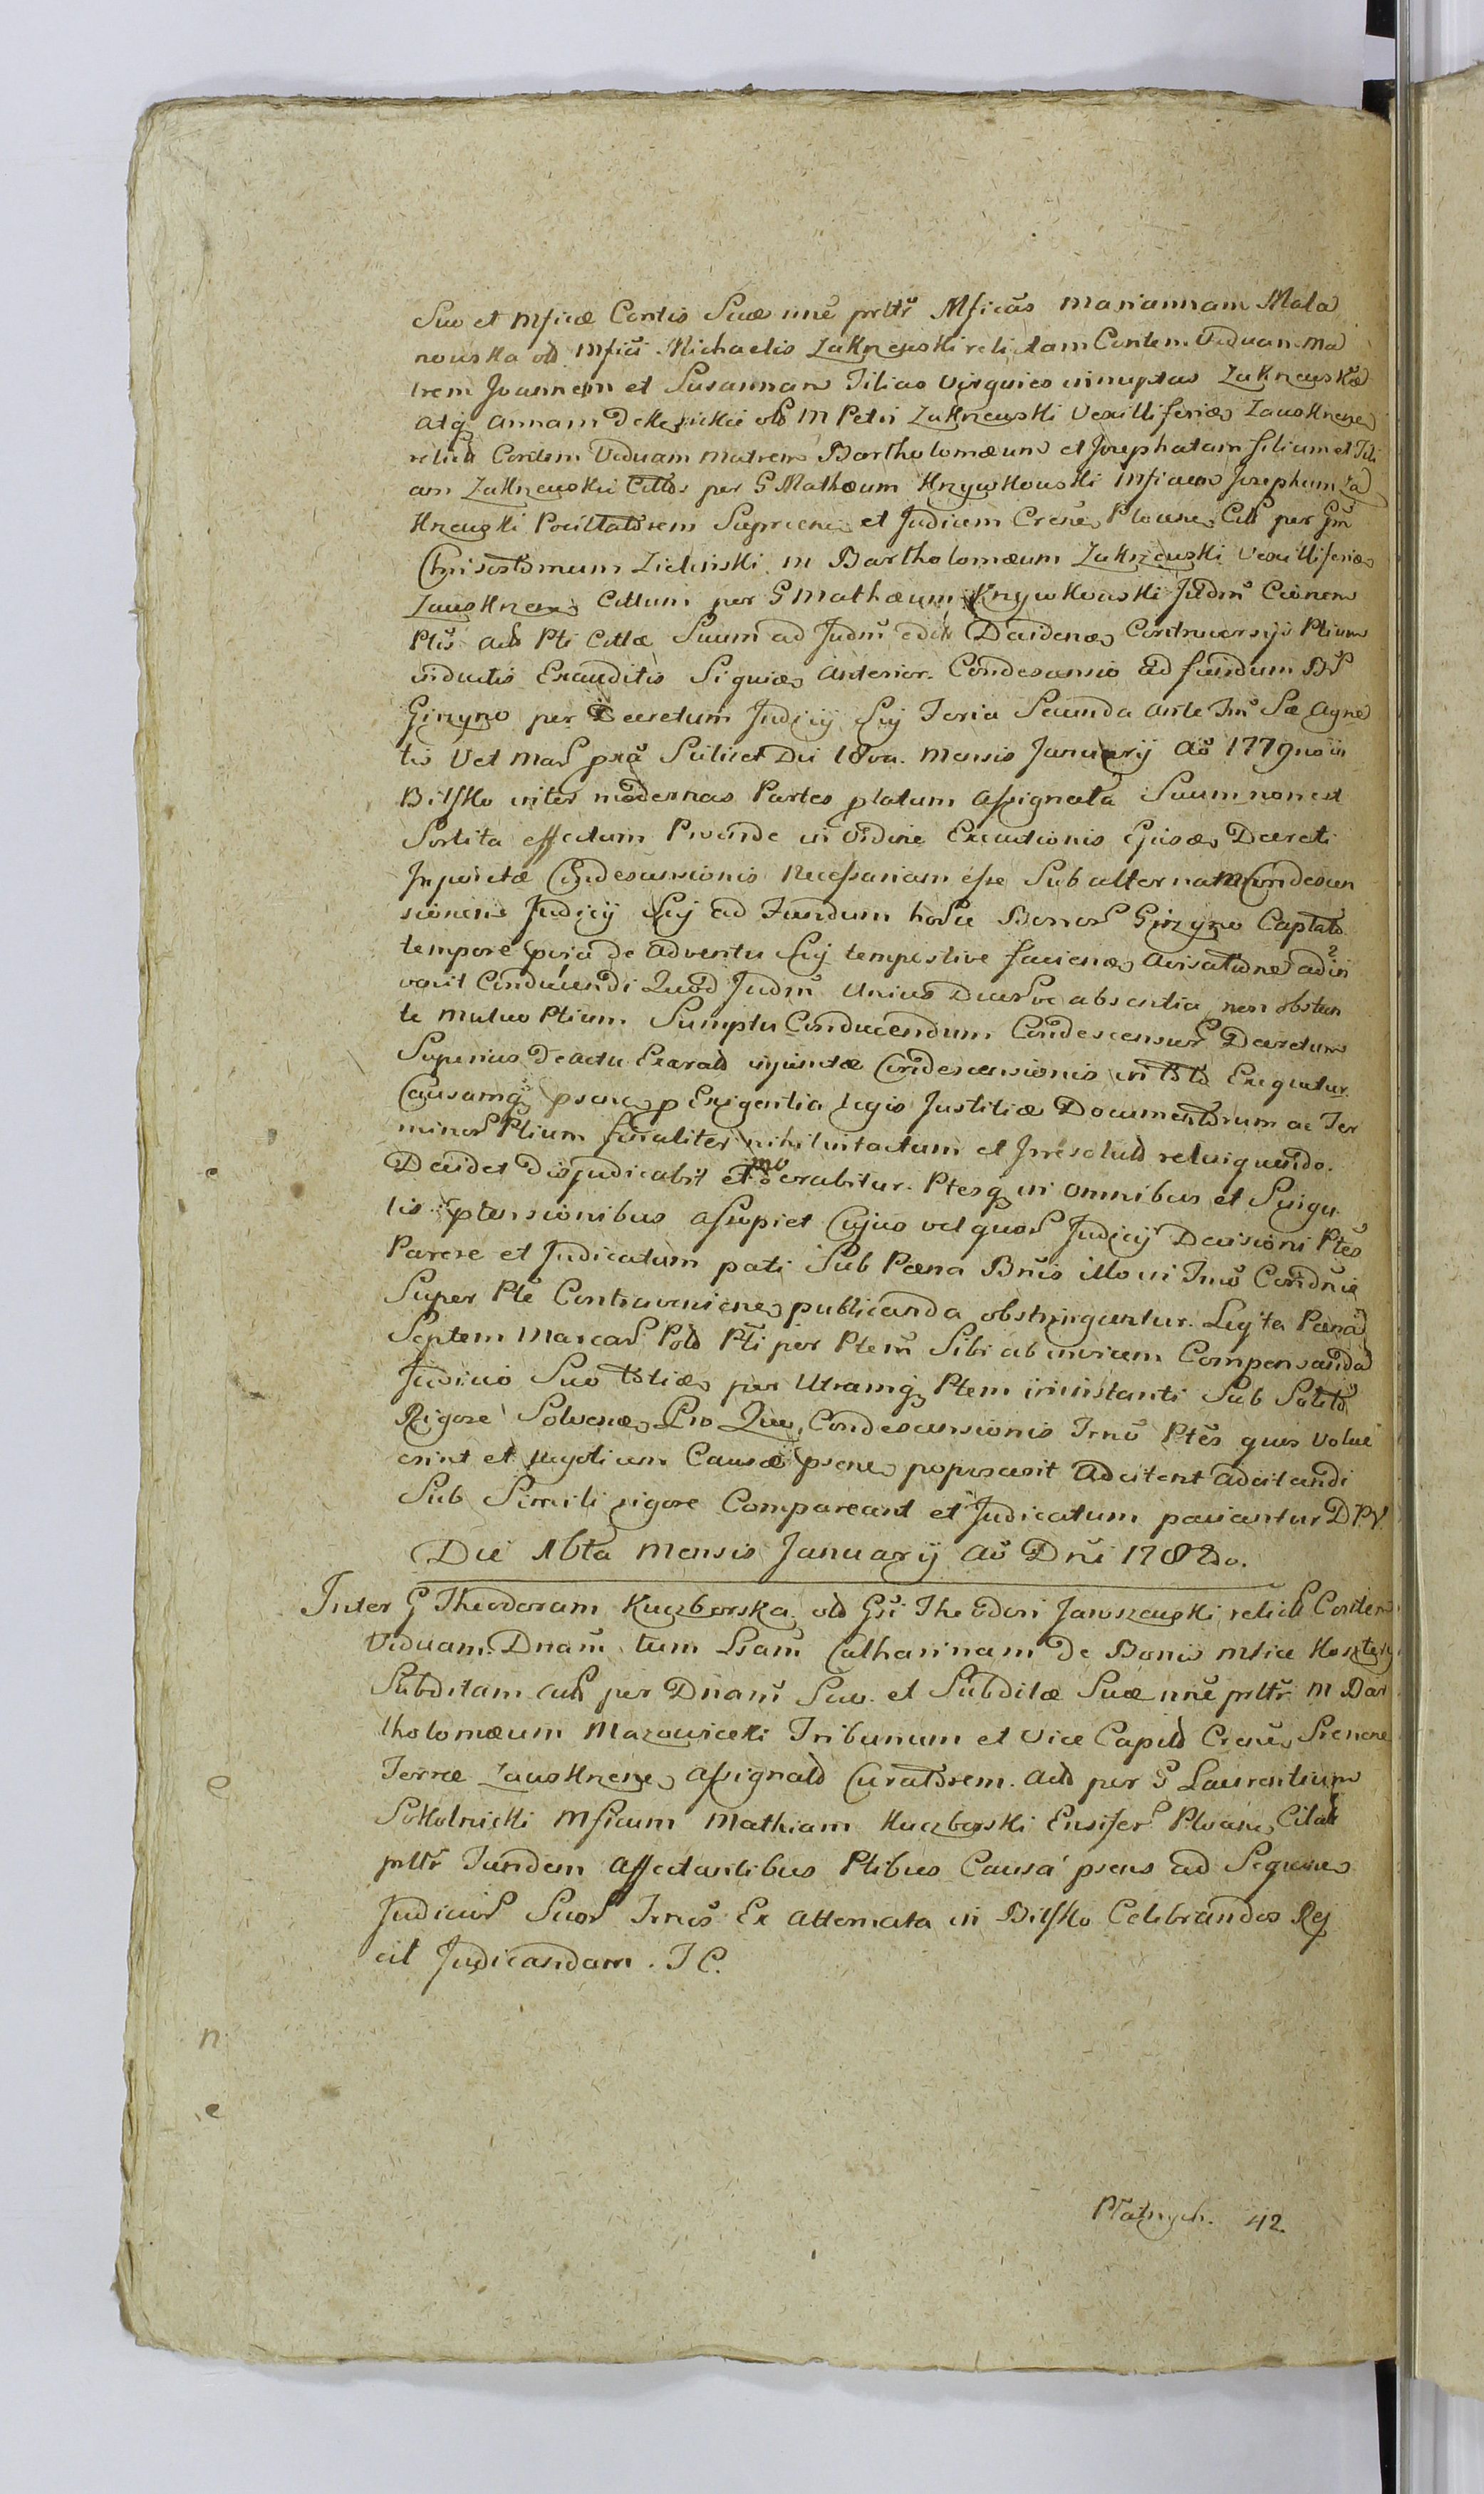 Suo et Mficæ Contis Suæ nne prltr Mficas Mariannam Mala
nouska olt Mfici Michaelis Zakrzewski relictam Contem Viduam Ma
trem Joannem et Susannam Filias Virgines innuptas Zakrzewskæ
atq Annam olt M Petri Zakrzewski Vexilliferiæ Zauskrzene
relict Contem Viduam Matrem Bartholomæum et Josephatam filium et Fili
am Zakrzewskie Cittos per G Mathæum Krzywkowski Mficum Josephum Za
krzewski Pocillatorem Suprene et Judicem Crene Plocene Citt per Gm
Chrisostomum Zielinski M Bartholomæum Zakrzewski Vexilliferiæ
Zauskrzene Cittum per G Mathæum Krzywkowski Judm Cionem
Ptis Act Pti Cittæ Suum ad Judm edit Decidenæ Controversijs Ptium
inductis Exauditis Siquiæ Anterior Condescensio ad fundum Br
Girzyno per Decretum Judicij Sui Feria Secunda ante Fm Sæ Agne
tis Vet Mar pxa Scilicet Die 18va Mensis Januarij Ao 1779no in
Bilsko inter modernas Partes platum assignata Suum non est
Sortita effectum Proinde in Ordine Executionis Ejusæ Decreti
Injunctæ Condescensionis Necessariam esse Subalternatam Condescen
sionem Judicij Sui ad Fundum horse Bonor Girzyno Captato
tempore pvia de adventu Sui tempestive facienæ avisatione adin
venit Conducendi Quod Judm Unius absentia non obstan
te mutuo Ptium Sumptu Conducendum Condescensur Decretum
Superius de actu Exarato injunctæ Condescensionis in toto Exequetur
Causamq psene p Exigentia legis Justitiæ Documentorum ac Ter
minor Ptium finaliter nihil intactum et Irresoluto relinquendo.
Decidet Disjudicabit et mo derabitur. Ptesq in omnibus et Singu
lis ptensionibus assopiet Cujus vel quor Judicij Decisioni Ptes
Parere et Judicatum pati Sub Pæna Bnis illo in Fno Condnie
Super Pte Contravenienæ publicanda obstringuntur. Luita Pæna
Septem Marcar Polo Pti per Ptem Sibi ab invicem Compensanda
Judicio Suo totiæ per Utramq Ptem in instanti Sub Solito
Rigore Solvenæ Pro Quo Condescensionis Fno Ptes quos Volue
erint et Negotium Causæ psene poposcerit Adcitent Adcitandi
Sub Simili rigore Compareant et Judicatum patiantur D.P.V.
Die 16ta Mensis Januarij Ao Dni 1782do.
Inter G Theodoram Kuczborska olt Gsi Theodori Jaroszewski relict Contem
Viduam Dnam tum Lsam Catharinam de Bonis
Subditam Act per Dnam Suo et Subditæ Suæ nne prltr M Bar
tholomæum Mazowiecki Tribunum et Vice Capit Crene Srenene
Terræ Zauskrzene Assignato Curatorem Act per G Laurentium
Sokolnicki Mficum Mathiam Kuczborski Ensifer Plocene Citat
prltr Tandem Affectantibus Ptibus Causa psens ad Sequene
Judicior Suor Fnos Ex Alternata in Bilsko Celebrandos Rej
cit Judicandam. I C.
Płatnych. 42
n
e